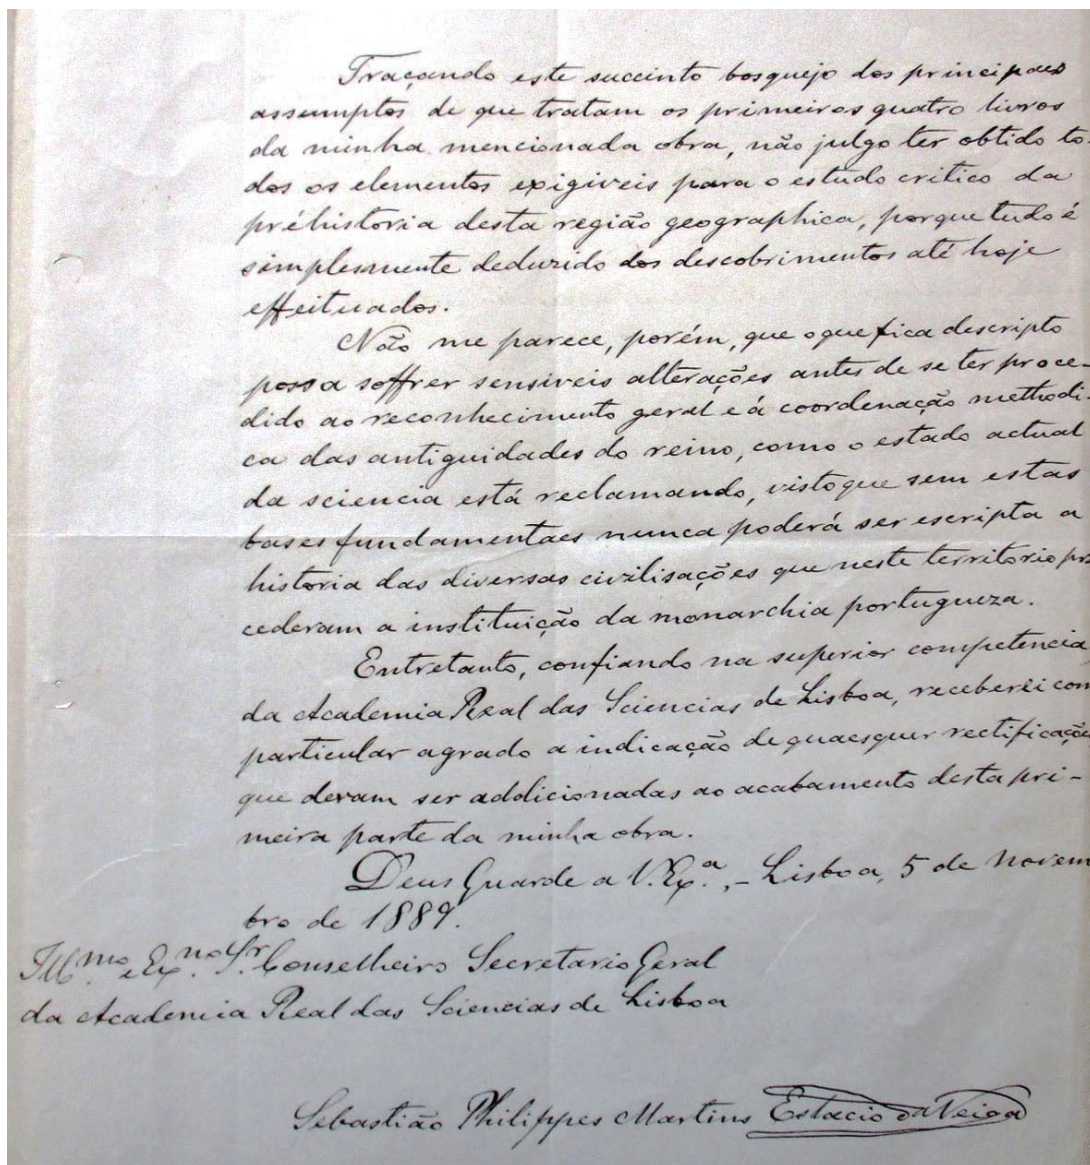 Traçando este succinto bosquejo dos principaes
assumptos de que tratam os primeiros quatro livros
da minha mencionada obra, não julgo ter obtido to-
dos os elementos exigiveis para o estudo critico da
préhistoria desta região geographica, porque tudo é
simplesmente deduzido dos descobrimentos até hoje
effeituados.
Não me parece, porém, que o que fica descripto
possa soffrer sensiveis alterações antes de se ter proce-
dido ao reconhecimento geral e á coordenação methodi-
ca das antiguidades do reino, como o estado actual
da sciencia está reclamando, visto que sem estas
bases fundamentaes nunca poderá ser escripta a
historia das diversas civilisações que neste territorio pre
cederam a instituição da monarchia portugueza.
Entretanto, confiando na superior competencia
da Academia Real das Sciencias de Lisboa, receberei com
particular agrado a indicação de quaesquer rectificações
que devam ser addicionadas ao acabamento desta pri-
meira parte da minha obra.
Deus Guarde a V. Ex.ª, - Lisboa, 5 de novem
bro de 1889.
Ill.mo e Ex.mo Sr. Conselheiro Secretario Geral
da Academia Real das Sciencias de Lisboa
Sebastião Philippes Martins Estacio da Veiga